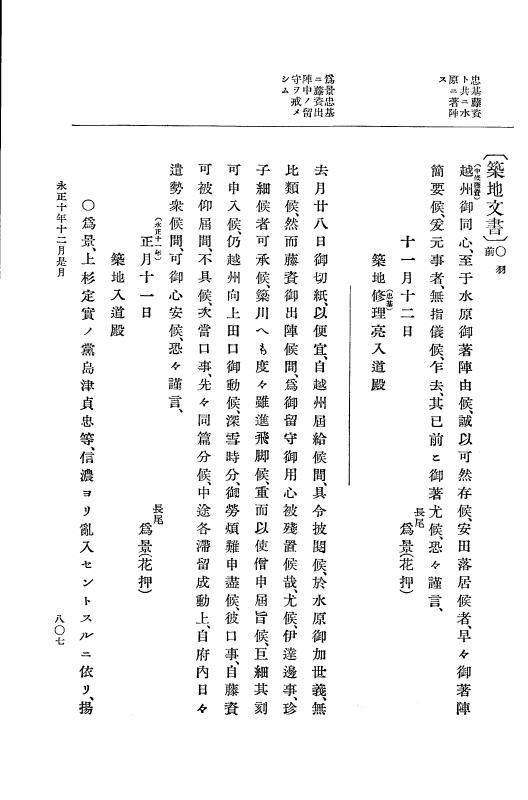 忠基藤資
ト共ニ水
原ニ著陣
ス
爲景忠基
ニ藤資出
陣中ノ留
守ヲ戒メ
シム
〔築地文書〕○羽前
越州(中條藤資)御同心、至于水原御著陣由候、誠以可然存候、安田落居候者、早々御著陣
簡要候、爰元事者、無指儀候、乍去、其已前ニ御著尤候、恐々謹言、
十一月十二日
長尾
爲景(花押)
築地修理亮(忠基)入道殿
去月廿八日御切紙、以便宜、自越州屆給候間、具令披閲候、於水原御加世義、無
比類候、然而藤資御出陣候間、爲御留守御用心被殘置候哉、尤候、伊達邊事、珍
子細候者可承候、築川へも度々雖進飛脚候、重而以使僧申屆旨候、巨細其刻
可申入候、仍越州向上田口御動候、深雪時分、御勞煩難申盡候、彼口事、自藤資
可被仰屆間、不具候、次當口事、先々同篇分候、中途各滯留成動上、自府內日々
遣勢衆候間、可御心安候、恐々謹言、
(永正十一年)
正月十一日
長尾
爲景(花押)
築地入道殿
○爲景、上杉定實ノ黨島津貞忠等、信濃ヨリ亂入セントスルニ依リ、揚
永正十年十二月是月
八〇七